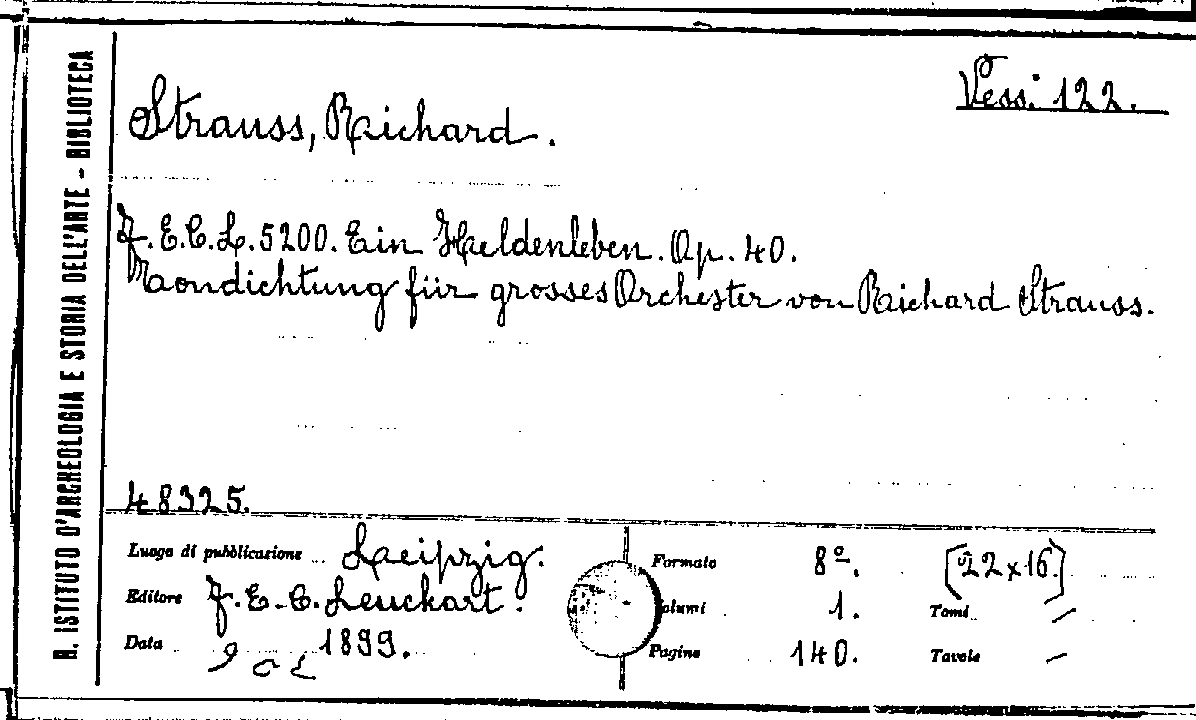 Vess. 122.
R. ISTITUTO D'ARCHEOLOGIA E STORIA DELL'ARTE - BIBLIOTECA
Strauss, Richard.
F.E.C.L. 5200. Ein Heldenleben. Op. 40.
Tondichtung für grosses Orchester von Richard Strauss.
48325.
Luogo di pubblicazione Leipzig. Formato 8º. [22x16]
Editore F. E. C. Leuckart. Volumi 1. Tomi —
Data 1899. Pagine 140. Tavole —